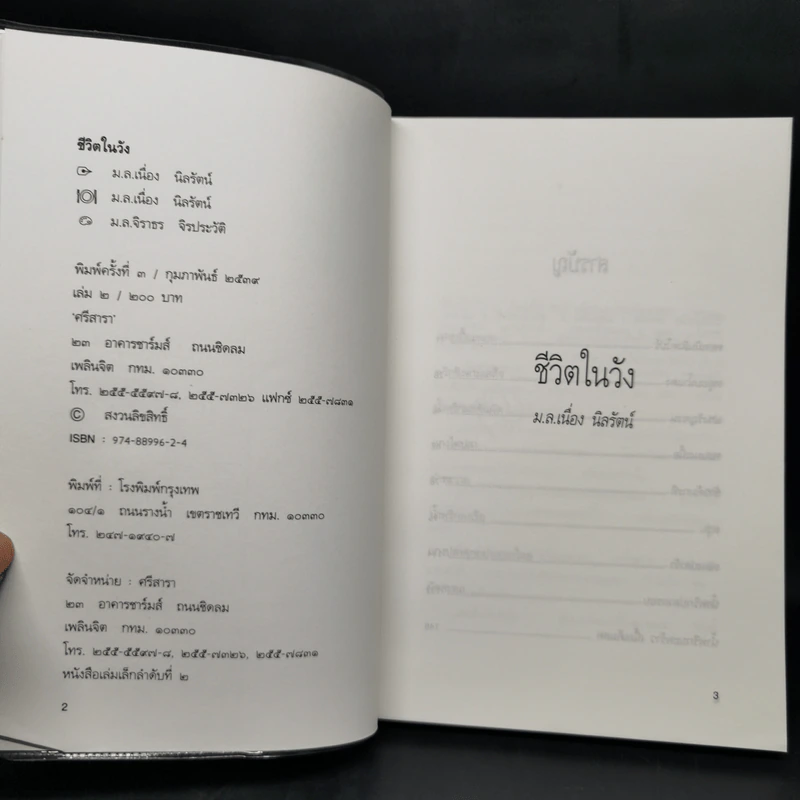 ชีวิตในวัง
ม.ล.เนื่อง นิลรัตน์
ม.ล.เนื่อง นิลรัตน์
ม.ล.จิราธร จิรประวัติ
พิมพ์ครั้งที่ ๓ / กุมภาพันธ์ ๒๕๓๙
เล่ม ๒ / ๒๐๐ บาท
"ศรีสารา"
๒๓ อาคารชาร์มส์ ถนนชิดลม
เพลินจิต กทม. ๑๐๓๓๐
โทร. ๒๕๕-๕๕๙๗-๘, ๒๕๕-๗๓๒๖ แฟกซ์ ๒๕๕-๗๘๓๑
© สงวนลิขสิทธิ์
ISBN : 974-88996-2-4
พิมพ์ที่ : โรงพิมพ์กรุงเทพ
๑๐๔/๑ ถนนรางน้ำ เขตราชเทวี กทม. ๑๐๓๓๐
โทร. ๒๔๗-๑๙๔๐-๗
จัดจำหน่าย : ศรีสารา
๒๓ อาคารชาร์มส์ ถนนชิดลม
เพลินจิต กทม. ๑๐๓๓๐
โทร. ๒๕๕-๕๕๙๗-๘, ๒๕๕-๗๓๒๖, ๒๕๕-๗๘๓๑
หนังสือเล่มเล็กลำดับที่ ๒
2
ชีวิตในวัง
ม.ล.เนื่อง นิลรัตน์
3